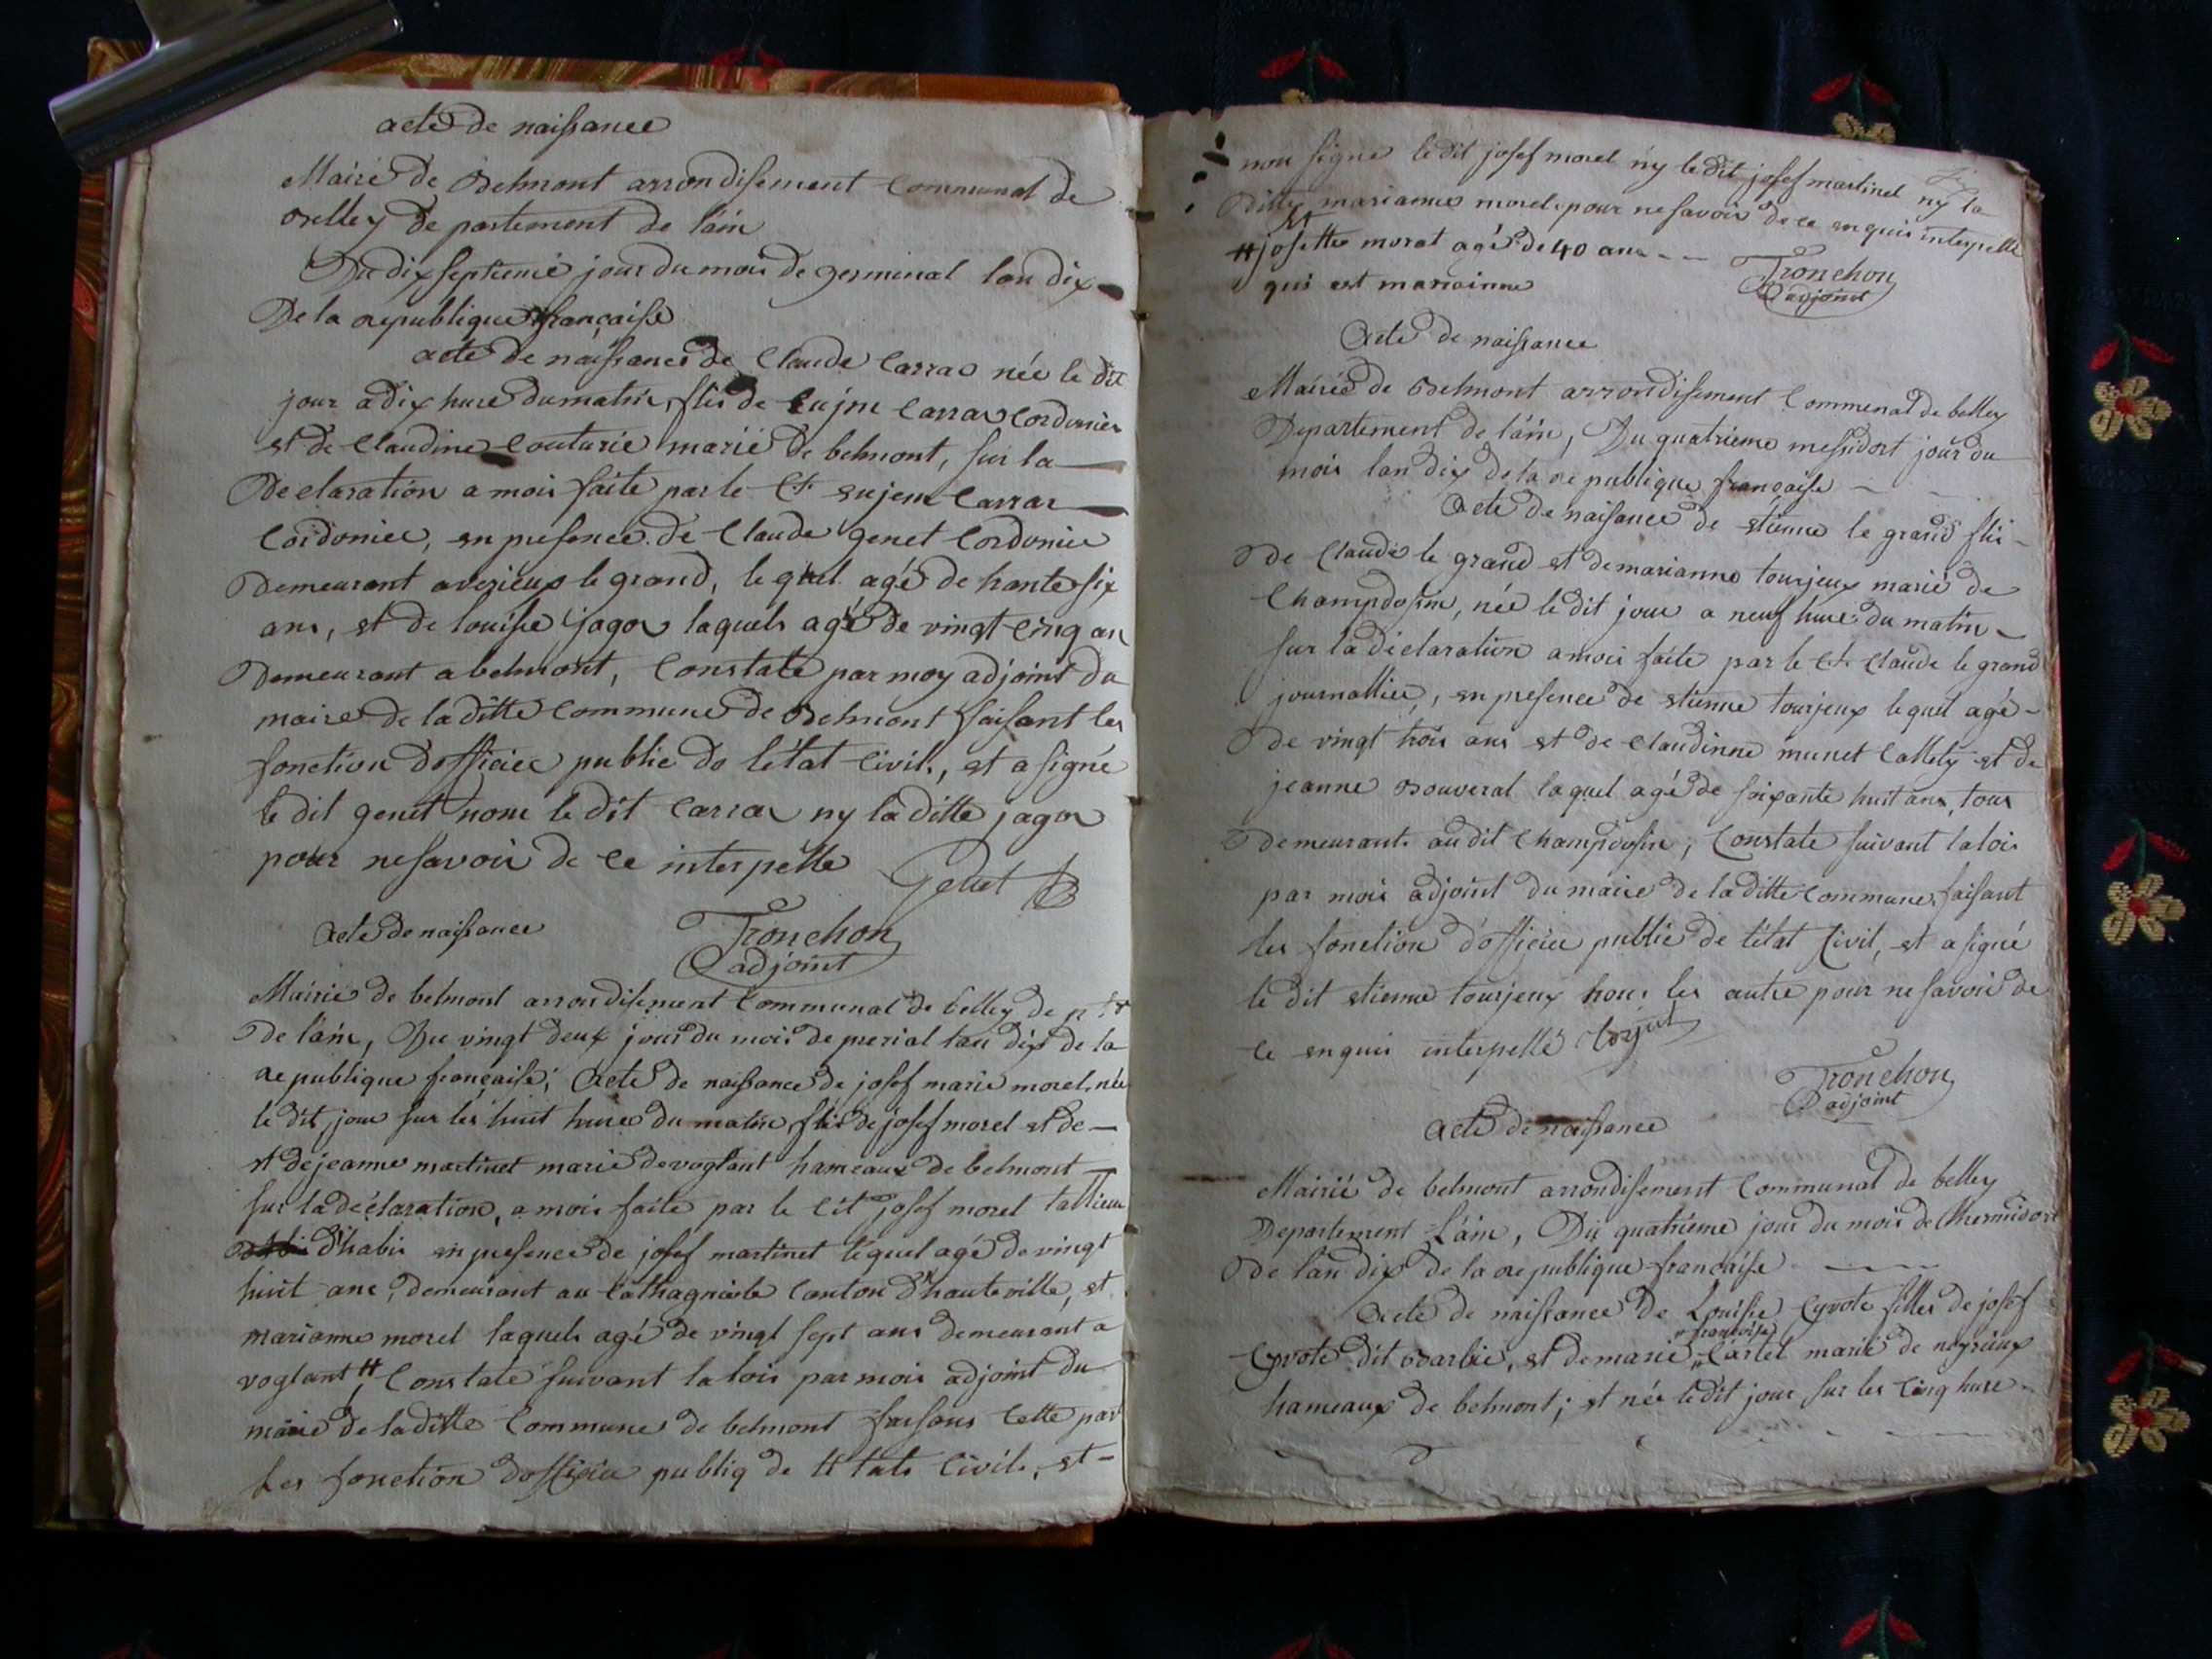 acte de naissance
Mairie de Belmont arrondisement Communal de
Belley departement de l'ain
Du dix septieme jour du mois de germinal lan dix
De la republique française
acte de naissance de Claude Carrar née le dit
jour a dix hure du matin, flis de Eujene Carrar Cordonier
et de Claudine Couturié marié de belmont, sur la
Declaration a moi faite par le Ct. eujene Carrar
Cordonier, en presence de Claude genet Cordonier
Demeurant a verieux le grand, le quel agé de trante six
ans, et de louise jagor laquels agé de vingt cinq an
Demeurant a belmont, Constate par moy adjoint du
maire de laditte Commune de Belmont faisant les
fonction d'officier public de l'état Civil, et a signé
le dit genet non le dit Carrar ny laditte jagor
pour ne savoir de ce interpelle Genet
Acte de naissance Tronchon
adjoint
Mairie de belmont arrondisement Communal de belley de pt
De l'ain, Du vingt deux jour du mois de prerial lan dix de la
republique française; Acte de naissance de josef marie morel, née
le dit jour sur les huit hure du matin, flis de josef morel et de
et de jeanne martinet marié de voglant hameaux de belmont
sur la declaration, a moi faite par le Cit josef morel tallieur
d'habis en presence de josef martinet lequel agé de vingt
huit ans, demeurant au Canton d'hauteville, et
marianne morel laquels agé de vingt sept ans demeurant a
voglant # Constate suivant la lois par mois adjoint du
maire de laditte Commune de belmont faisans cette part
Les fonction d'officier publiq de civil, et
non signe ledit josef morel ny le dit josef martinet ny la
Ditte marianne morel, pour ne savoir de ce enquis interpelle
# josette morat agé de 40 ans
qui est marainne Tronchon
adjoint
Acte de naissance
Mairie de Belmont arrondisement Communal de belley
Departement de l'ain, Du quatrieme messidort jour du
mois lan dix de la republique française
Acte de naissance de etienne le grand flis
de Claude le grand et de marianne tourjeux marié de
Champdosin, née le dit jour a neuf hure du matin
sur la declaration a moi faite par le Ct. Claude le grand
journallier, en presence de etienne tourjeux lequel agé
De vingt trois ans et de Claudinne munet et de
jeanne Bouverat laquel agé de soixante huit ans, tous
Demeurant audit Champdosin; Constate suivant la loi
par mois adjoint du maire de laditte Commune, faisant
les fonction d'officier public de l'état Civil, et a signé
le dit etienne tourjeux nons les autre pour ne savoir de
ce enquis interpellé
Tronchon
adjoint
Acte de naissance
Mairie de belmont arrondisement Communal de belley
Departement L'ain, Du quatrieme jour du mois de thermidore
De lan dix de la republique française
Acte de naissance de Louise Cyvote filles de josef
françoise
Cyvote dit Barbié, et de marie Cartet marié de neyrieux
hameaux de belmont; et née ledit jour, sur les cinq hure